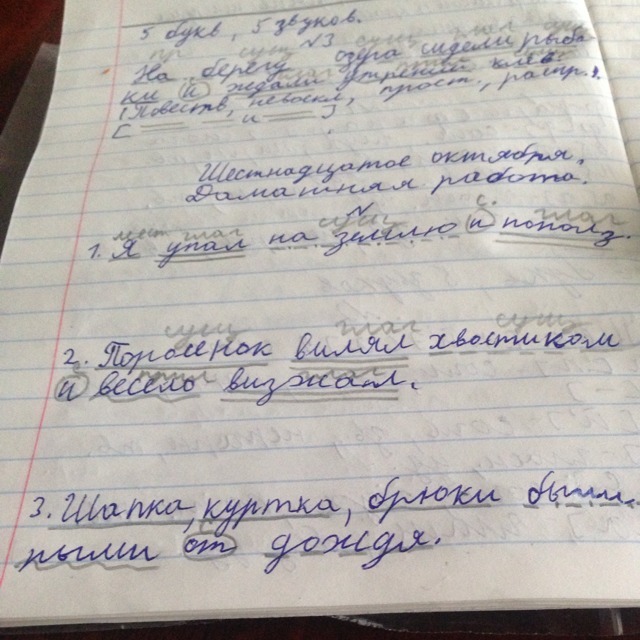 5 букв, 5 звуков.
№3
пр сущ сущ глаг сущ
На берегу озера сидели рыба
ки и ждали утренний клёв
(Повеств, невоскл, прост, распр.).
[ и ]
Шестнадцатое октября.
Дамашняя работа.
мест глаг сущ с. глаг
1. Я упал на землю и пополз.
сущ глаг сущ
2. Поросёнок вилял хвостиком
с глаг
и весело визжал.
3. Шапка, куртка, брюки были
ными от дождя.